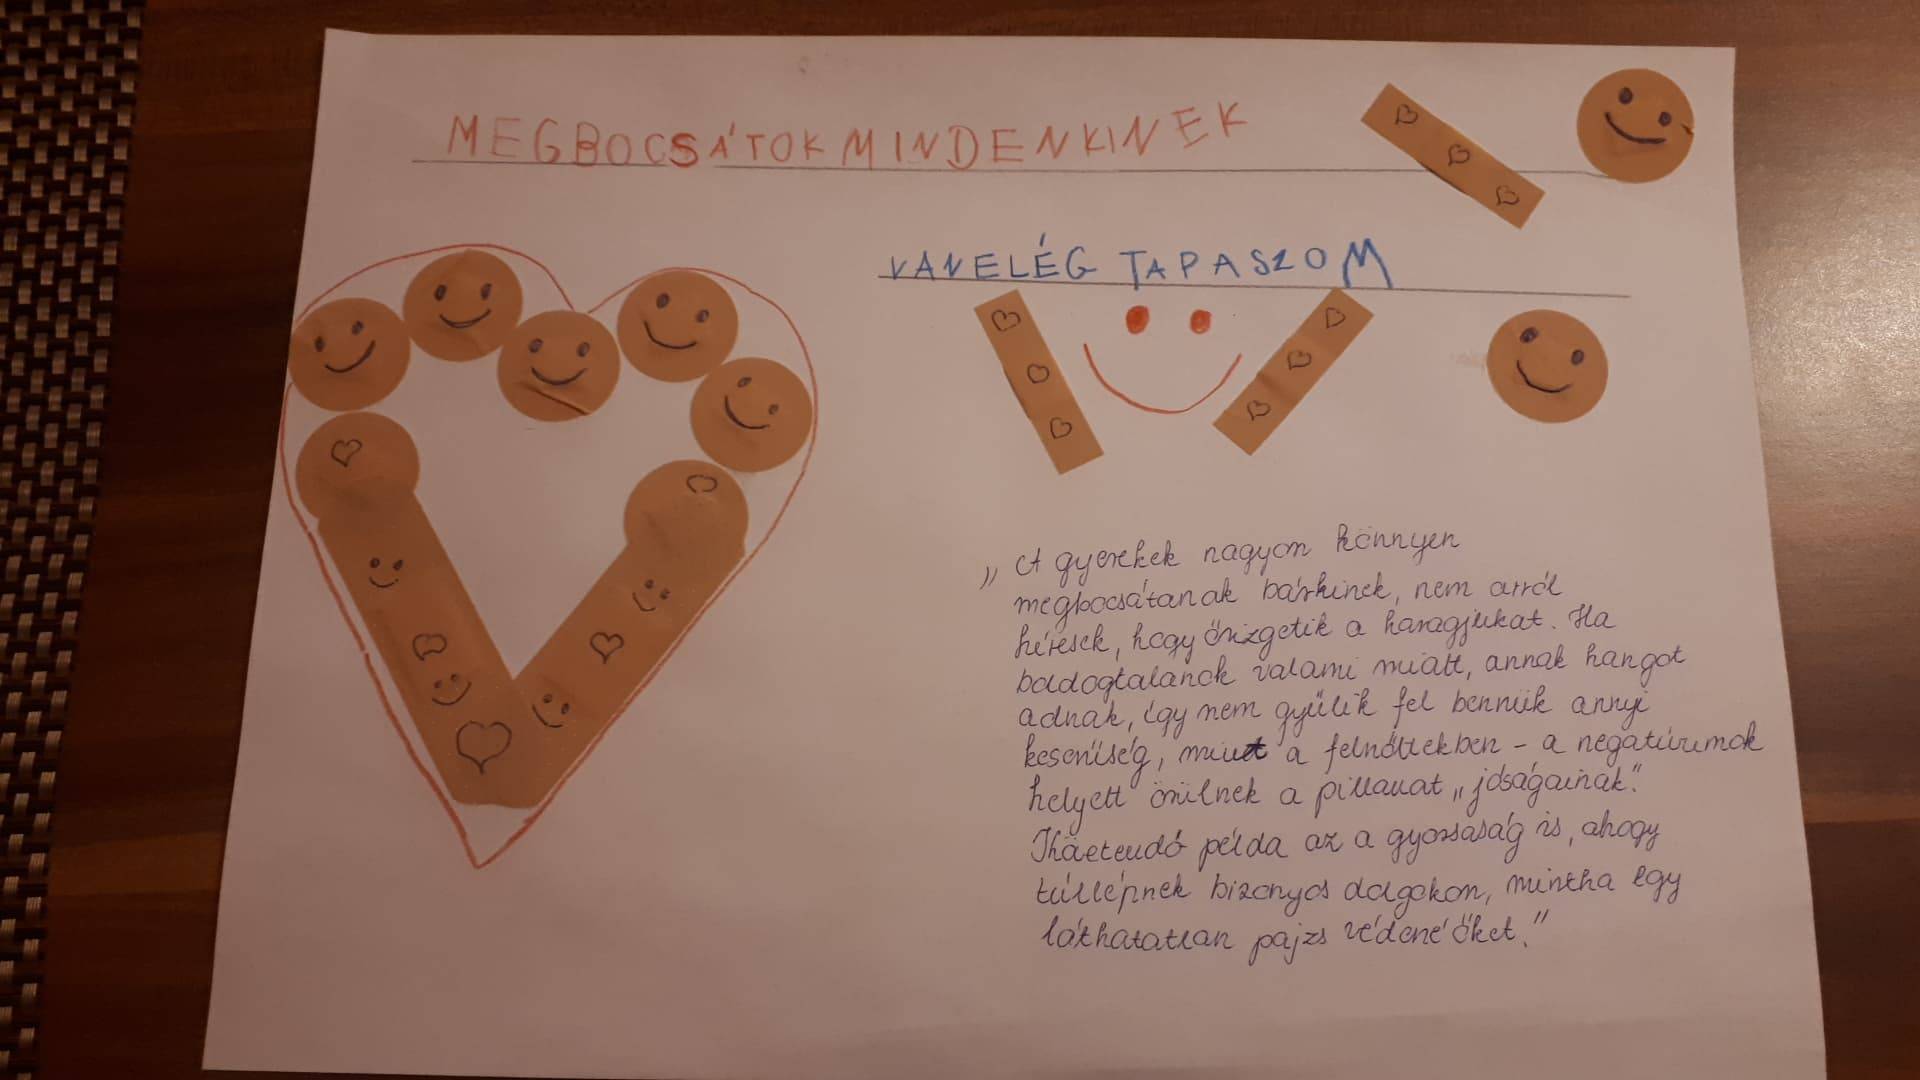 MEGBOCSÁTOK MINDENKINEK
VAN ELÉG TAPASZOM
„A gyerekek nagyon könnyen
megbocsátanak bárkinek, nem arról
híresek, hogy őrizgetik a haragjukat. Ha
boldogtalanok valami miatt, annak hangot
adnak, így nem gyűlik fel bennük annyi
keserűség, mint a felnőttekben - a negatívumok
helyett örülnek a pillanat „jóságainak".
Ikáeteudő példa az a gyorsaság is, ahogy
túllépnek bizonyos dolgokon, mintha egy
láthatatlan pajzs védené őket."